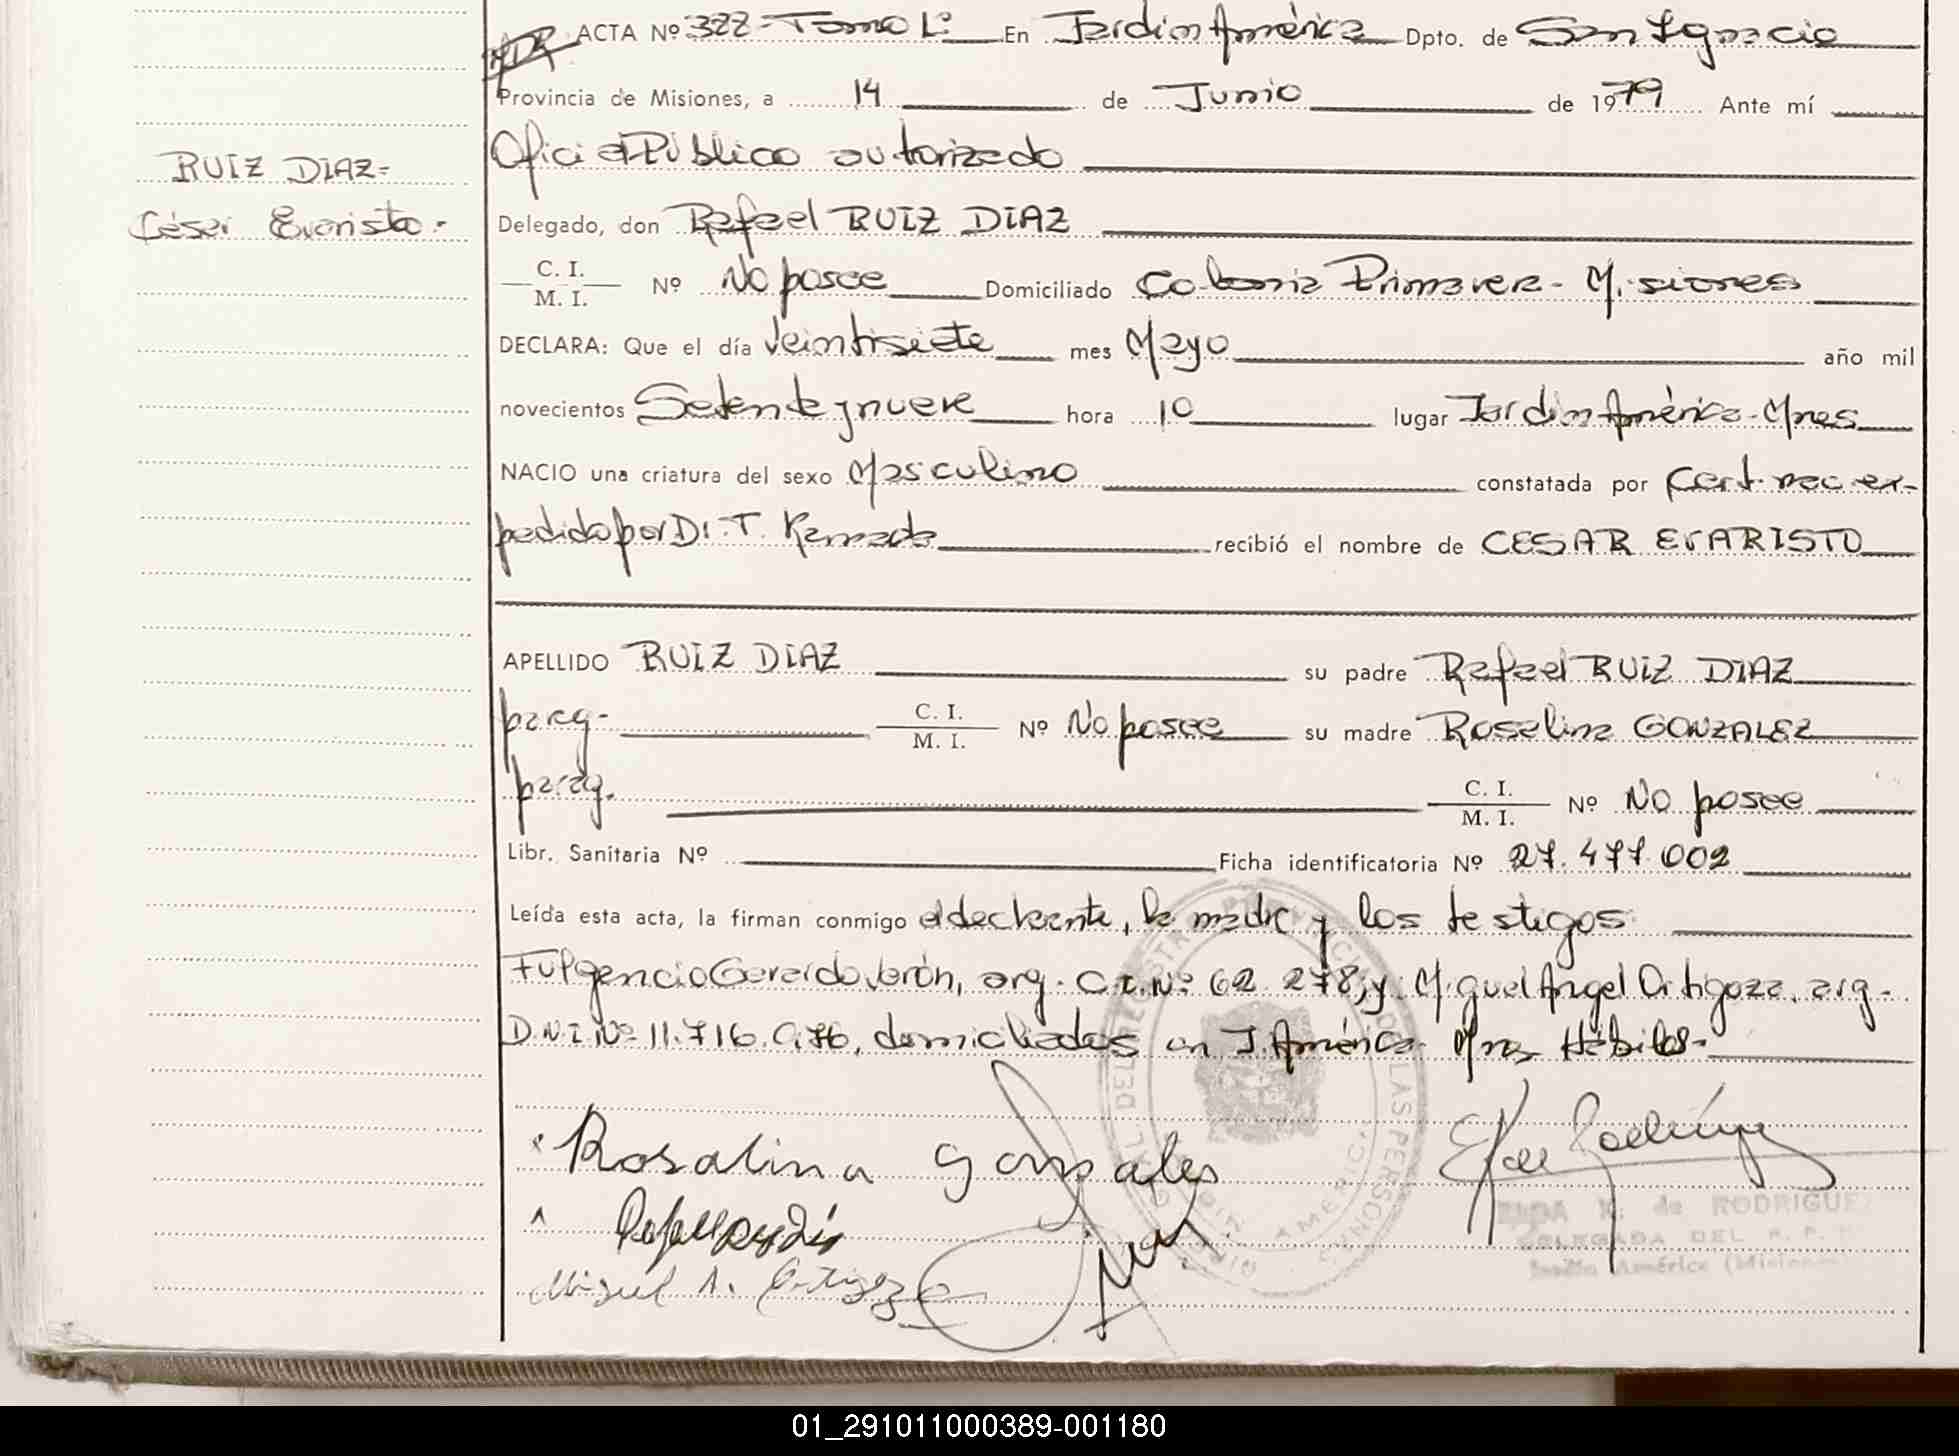 ACTA Nº 322 - Tomo Lº En Jardín América Dpto. de San Ignacio
Provincia de Misiones, a 14 de Junio de 1979 Ante mí
Oficial Público autorizado
RUIZ DIAZ-
César Evaristo.-
Delegado, don Rafael RUIZ DIAZ
C. I.
M. I. Nº No posee Domiciliado Colonia Primavera - Misiones
DECLARA: Que el día Veintisiete mes Mayo año mil
novecientos Setenta y nueve hora 10 lugar Jardín América - Mnes
NACIO una criatura del sexo Masculino constatada por Cert. nac ex-
pedido por Dr. T. Kamada recibió el nombre de CESAR EVARISTO
APELLIDO RUIZ DIAZ su padre Rafael RUIZ DIAZ
parag- C. I.
M. I. Nº No posee su madre Rosalina GONZALEZ
parag. C. I.
M. I. Nº No posee
Libr. Sanitaria Nº Ficha identificatoria Nº 27.477.002
Leída esta acta, la firman conmigo el declarante, la madre y los testigos
Fulgencio Gerardo Verón, arg. C.I. Nº 62.278, y Miguel Angel Ortigoza, arg-
D.N.I. Nº 11.716.976, domiciliados en J. América Mnes Hábiles-
Rosalina Gonzales
Miguel A. Ortigoza
ELDA K. de RODRIGUEZ
DELEGADA DEL R. P.
Jardín América (Misiones
01_291011000389-001180